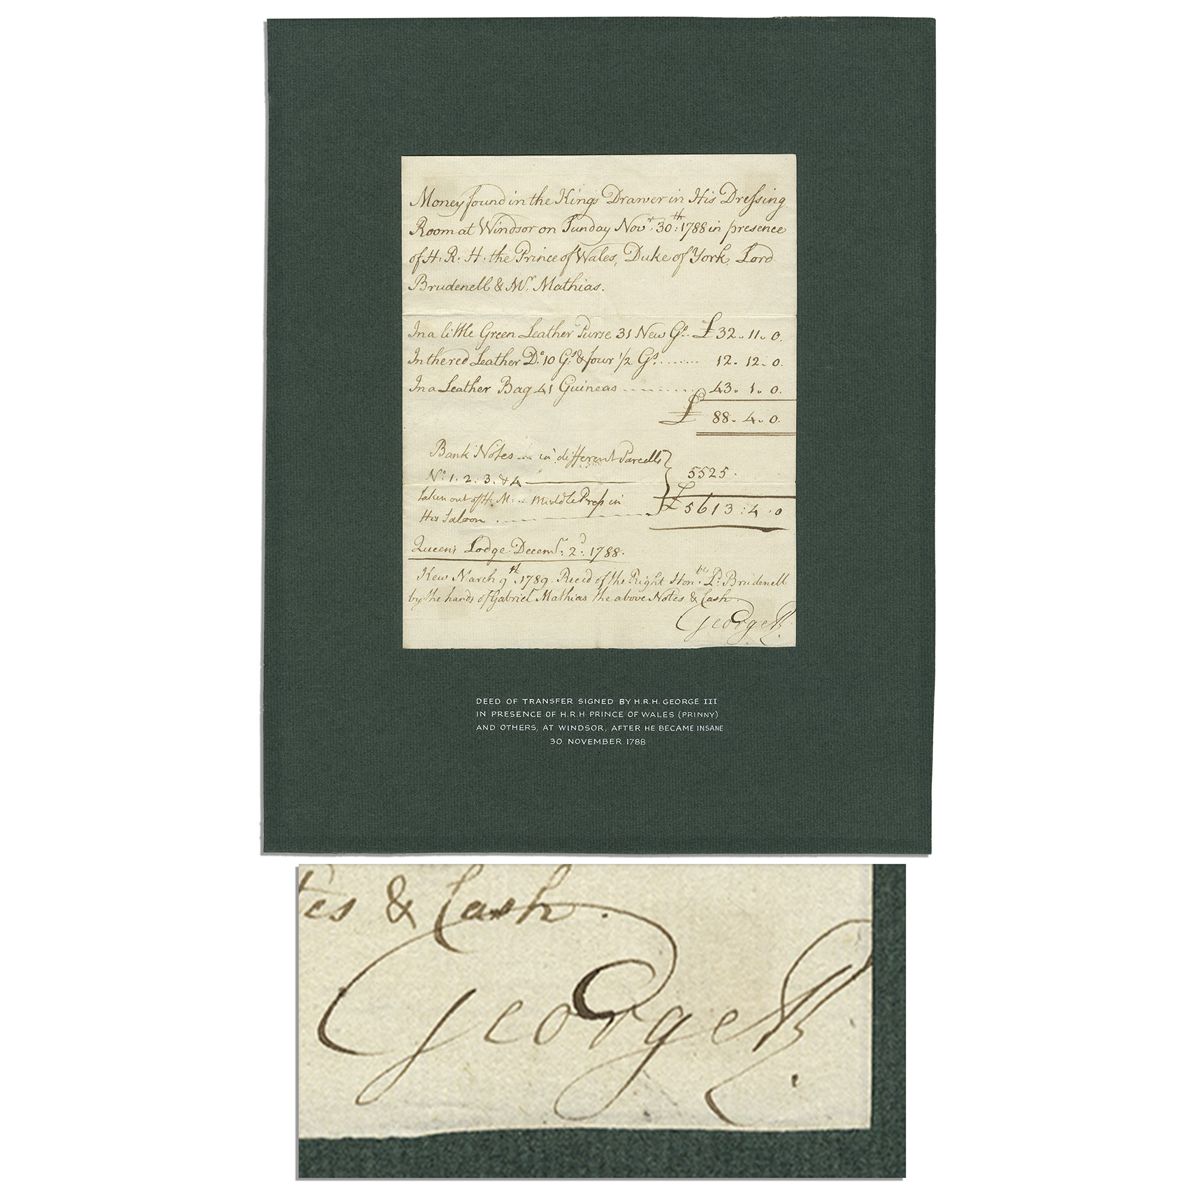 Money found in the Kings Drawer in His Dressing
Room at Windsor on Sunday Novr. 30th: 1788 in presence
of H. R. H. the Prince of Wales, Duke of York Lord
Brudenell & Mr. Mathias.
In a little Green Leather Purse 31 New Gs. £32.. 11.. 0.
In the red Leather Do. 10 Gs. & four 1/2 Gs. ...... 12. 12.. 0.
In a Leather Bag 41 Guineas ............ 43.. 1.. 0.
£ 88.. 4.. 0.
Bank Notes in different Parcells
No. 1. 2. 3. & 4 5525.
taken out of H. M. Middle Press in £5613:4.0
His Saloon
Queen's Lodge Decemr. 2d: 1788.
Kew March 9th: 1789. Receid of the Right Honble Ld. Brudenell
by the hands of Gabriel Mathias the above Notes & Cash.
George R.
DEED OF TRANSFER SIGNED BY H.R.H. GEORGE III
IN PRESENCE OF H.R.H PRINCE OF WALES (PRINNY)
AND OTHERS, AT WINDSOR, AFTER HE BECAME INSANE
30 NOVEMBER 1788
tes & Cash.
George R.